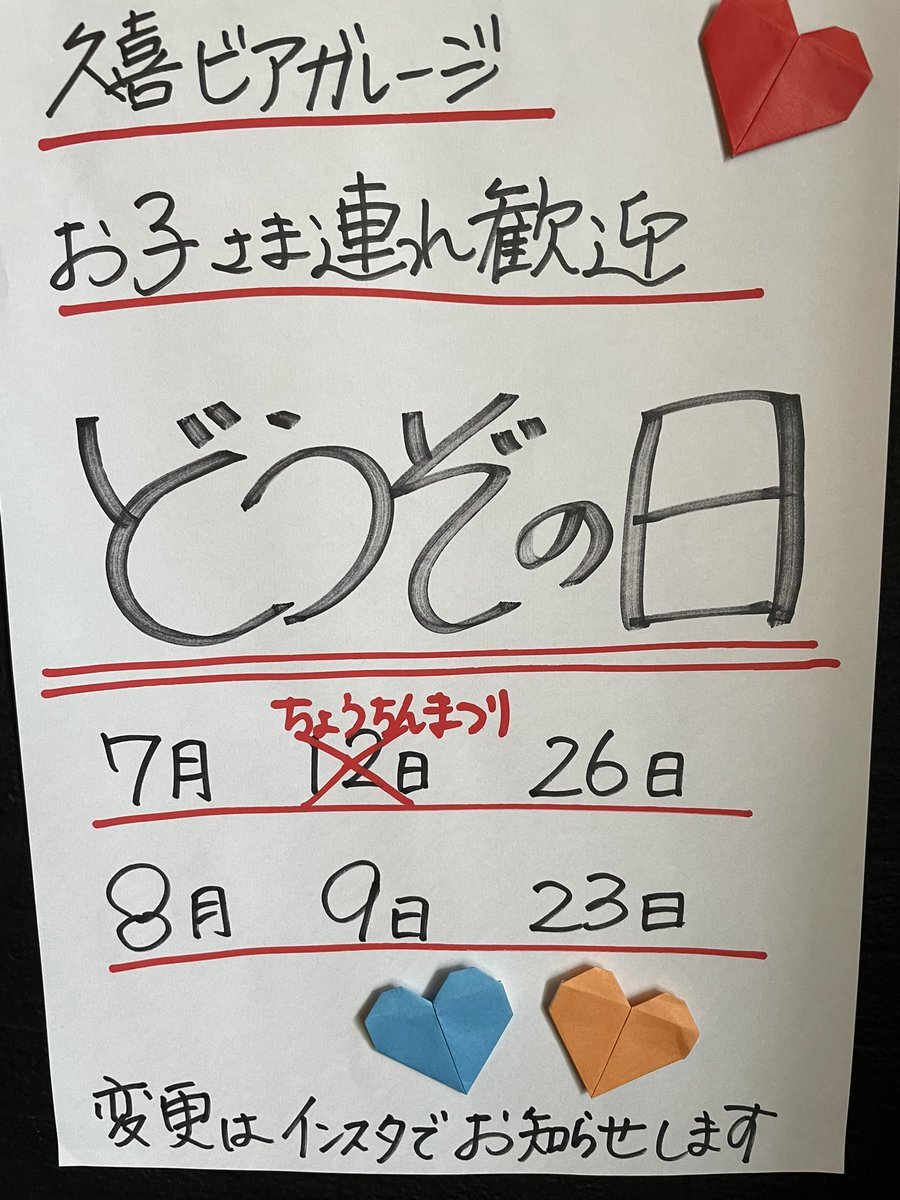 久喜ビアガレージ
お子さま連れ歓迎
どうぞの日
ちょうちんまつり
7月 12日 26日
8月 9日 23日
変更はインスタでお知らせします